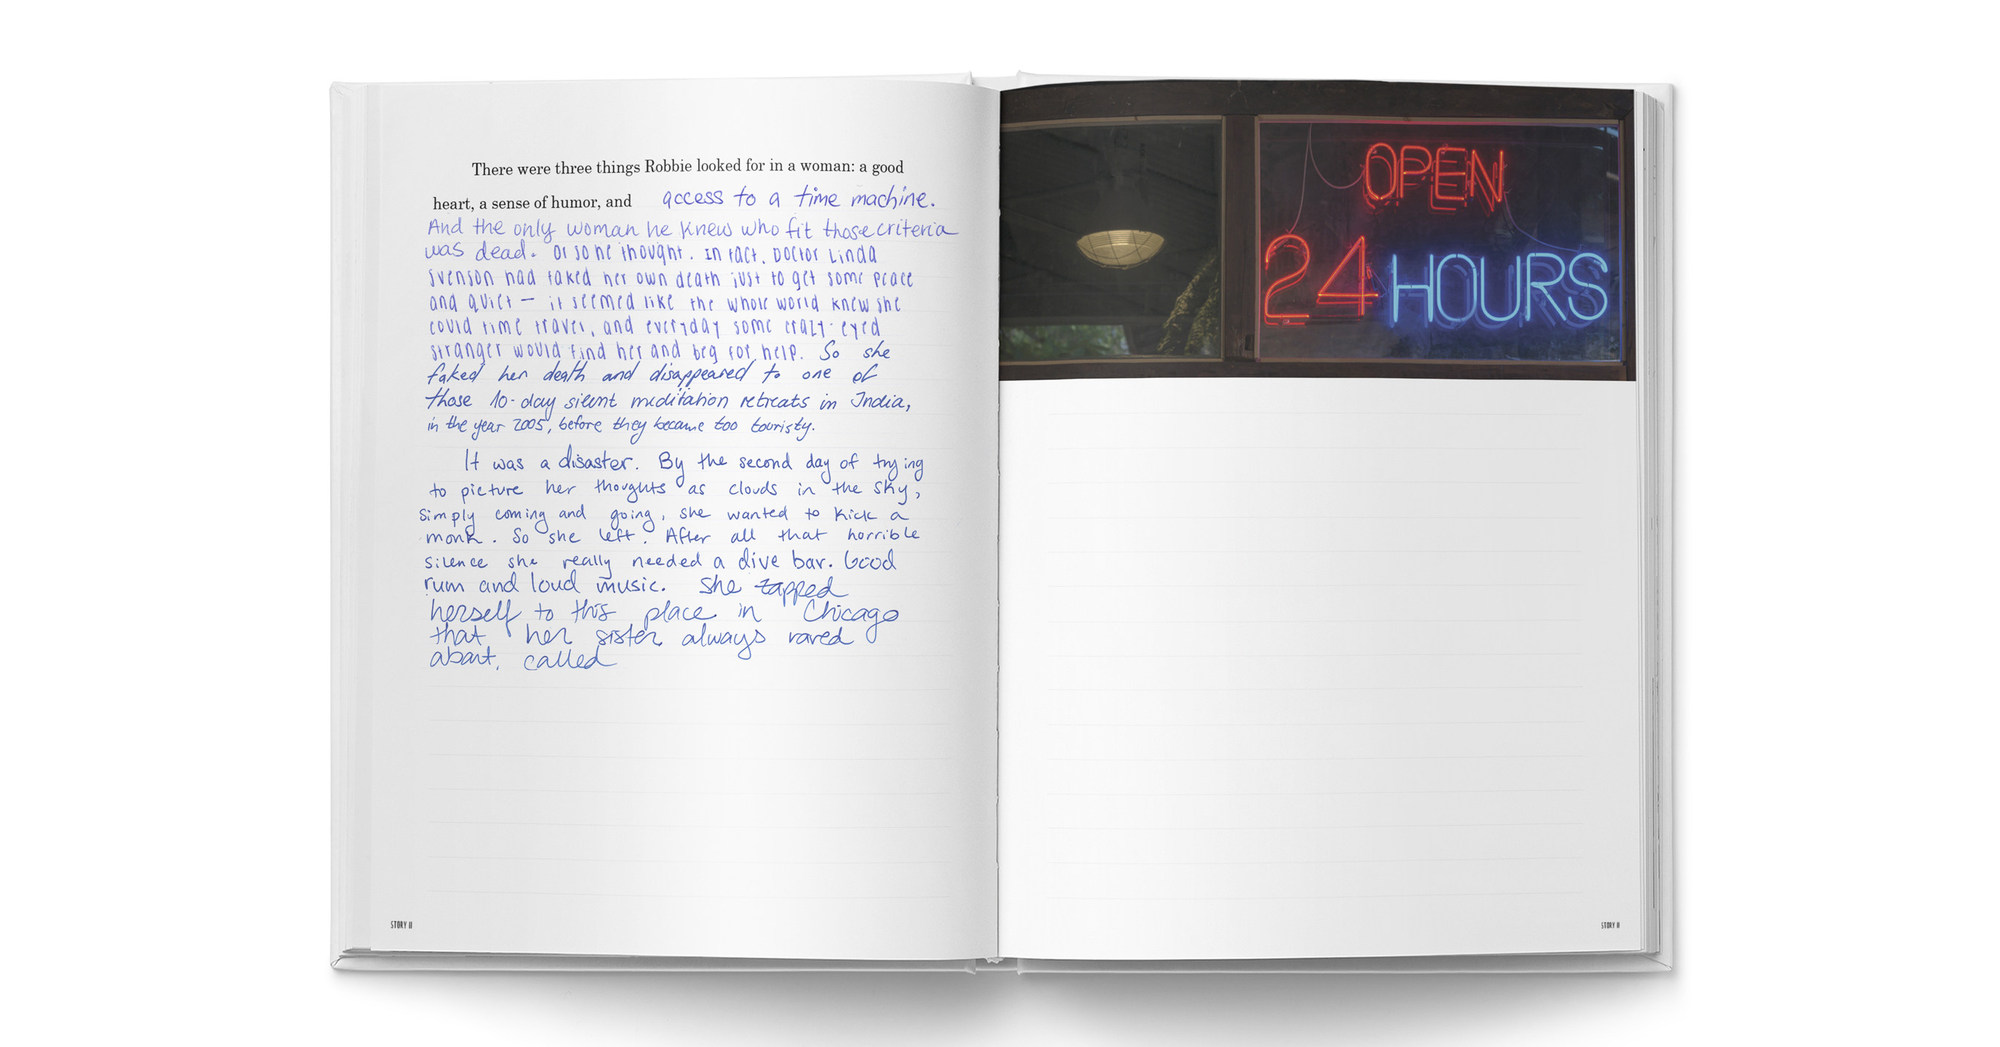 There were three things Robbie looked for in a woman: a good
heart, a sense of humor, and access to a time machine.
And the only woman he knew who fit those criteria
was dead. Or so he thought. In fact, Doctor Linda
Svenson had faked her own death just to get some peace
and quiet — it seemed like the whole world knew she
could time travel, and everyday some crazy-eyed
stranger would find her and beg for help. So she
faked her death and disappeared to one of
those 10-day silent meditation retreats in India,
in the year 2005, before they became too touristy.
It was a disaster. By the second day of trying
to picture her thoughts as clouds in the sky,
simply coming and going, she wanted to kick a
monk. So she left. After all that horrible
silence she really needed a dive bar. Good
rum and loud music. She zapped
herself to this place in Chicago
that her sister always raved
about, called
STORY II
OPEN
24 HOURS
STORY II